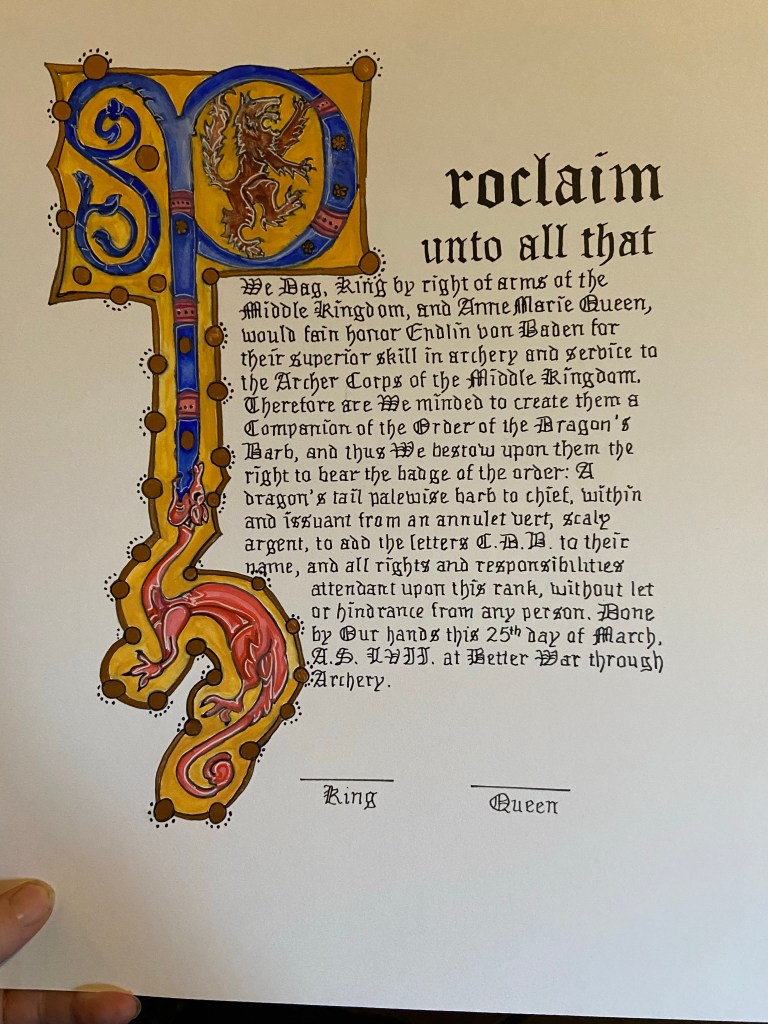 Proclaim
unto all that
We Dag, King by right of arms of the
Middle Kingdom, and AnneMarie Queen,
would fain honor Endlin von Baden for
their superior skill in archery and service to
the Archer Corps of the Middle Kingdom.
Therefore are We minded to create them a
Companion of the Order of the Dragon's
Barb, and thus We bestow upon them the
right to bear the badge of the order: A
dragon's tail palewise barb to chief, within
and issuant from an annulet vert, scaly
argent, to add the letters C.D.B. to their
name, and all rights and responsibilities
attendant upon this rank, without let
or hindrance from any person. Done
by Our hands this 25th day of March,
A.S. LVII. at Better War through
Archery.
King Queen